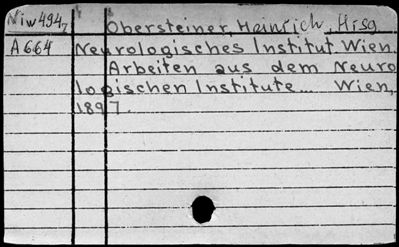 Niw494,
A664
Obersteiner, Heinrich, Hrsg
Neurologisches Institut Wien.
Arbeiten aus dem Neuro
logischen Institute... Wien,
1897.